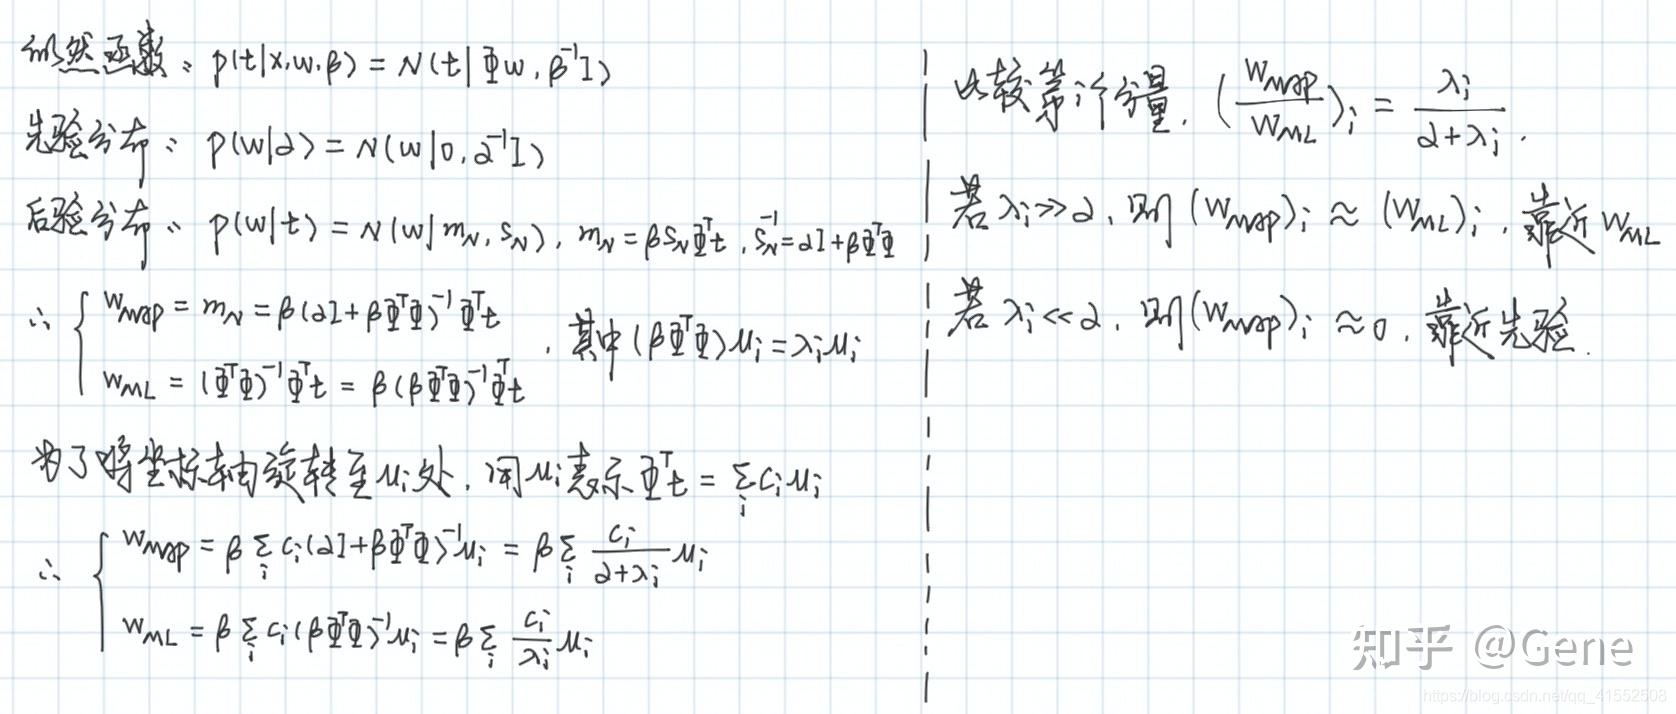 似然函数: p(t|x,w,β) = N(t|Φw, β⁻¹I)
先验分布: p(w|α) = N(w|0, α⁻¹I)
后验分布: p(w|t) = N(w|m_N, S_N), m_N = βS_NΦᵀt, S_N⁻¹ = αI+βΦᵀΦ
∴ { w_map = m_N = β(αI+βΦᵀΦ)⁻¹Φᵀt
w_ML = (ΦᵀΦ)⁻¹Φᵀt = β(βΦᵀΦ)⁻¹Φᵀt
, 其中(βΦᵀΦ)u_i = λ_i u_i
为了将坐标轴旋转至u_i处, 用u_i表示Φᵀt = Σ_i c_i u_i
∴ { w_map = β Σ_i c_i(αI+βΦᵀΦ)⁻¹u_i = β Σ_i c_i/(α+λ_i) u_i
w_ML = β Σ_i c_i(βΦᵀΦ)⁻¹u_i = β Σ_i c_i/λ_i u_i
比较第i个分量, (w_map/w_ML)_i = λ_i/(α+λ_i).
若λ_i>>α, 则(w_map)_i ≈ (w_ML)_i, 靠近w_ML
若λ_i<<α, 则(w_map)_i ≈0, 靠近先验.
知乎 @Gene
https://blog.csdn.net/qq_41552508